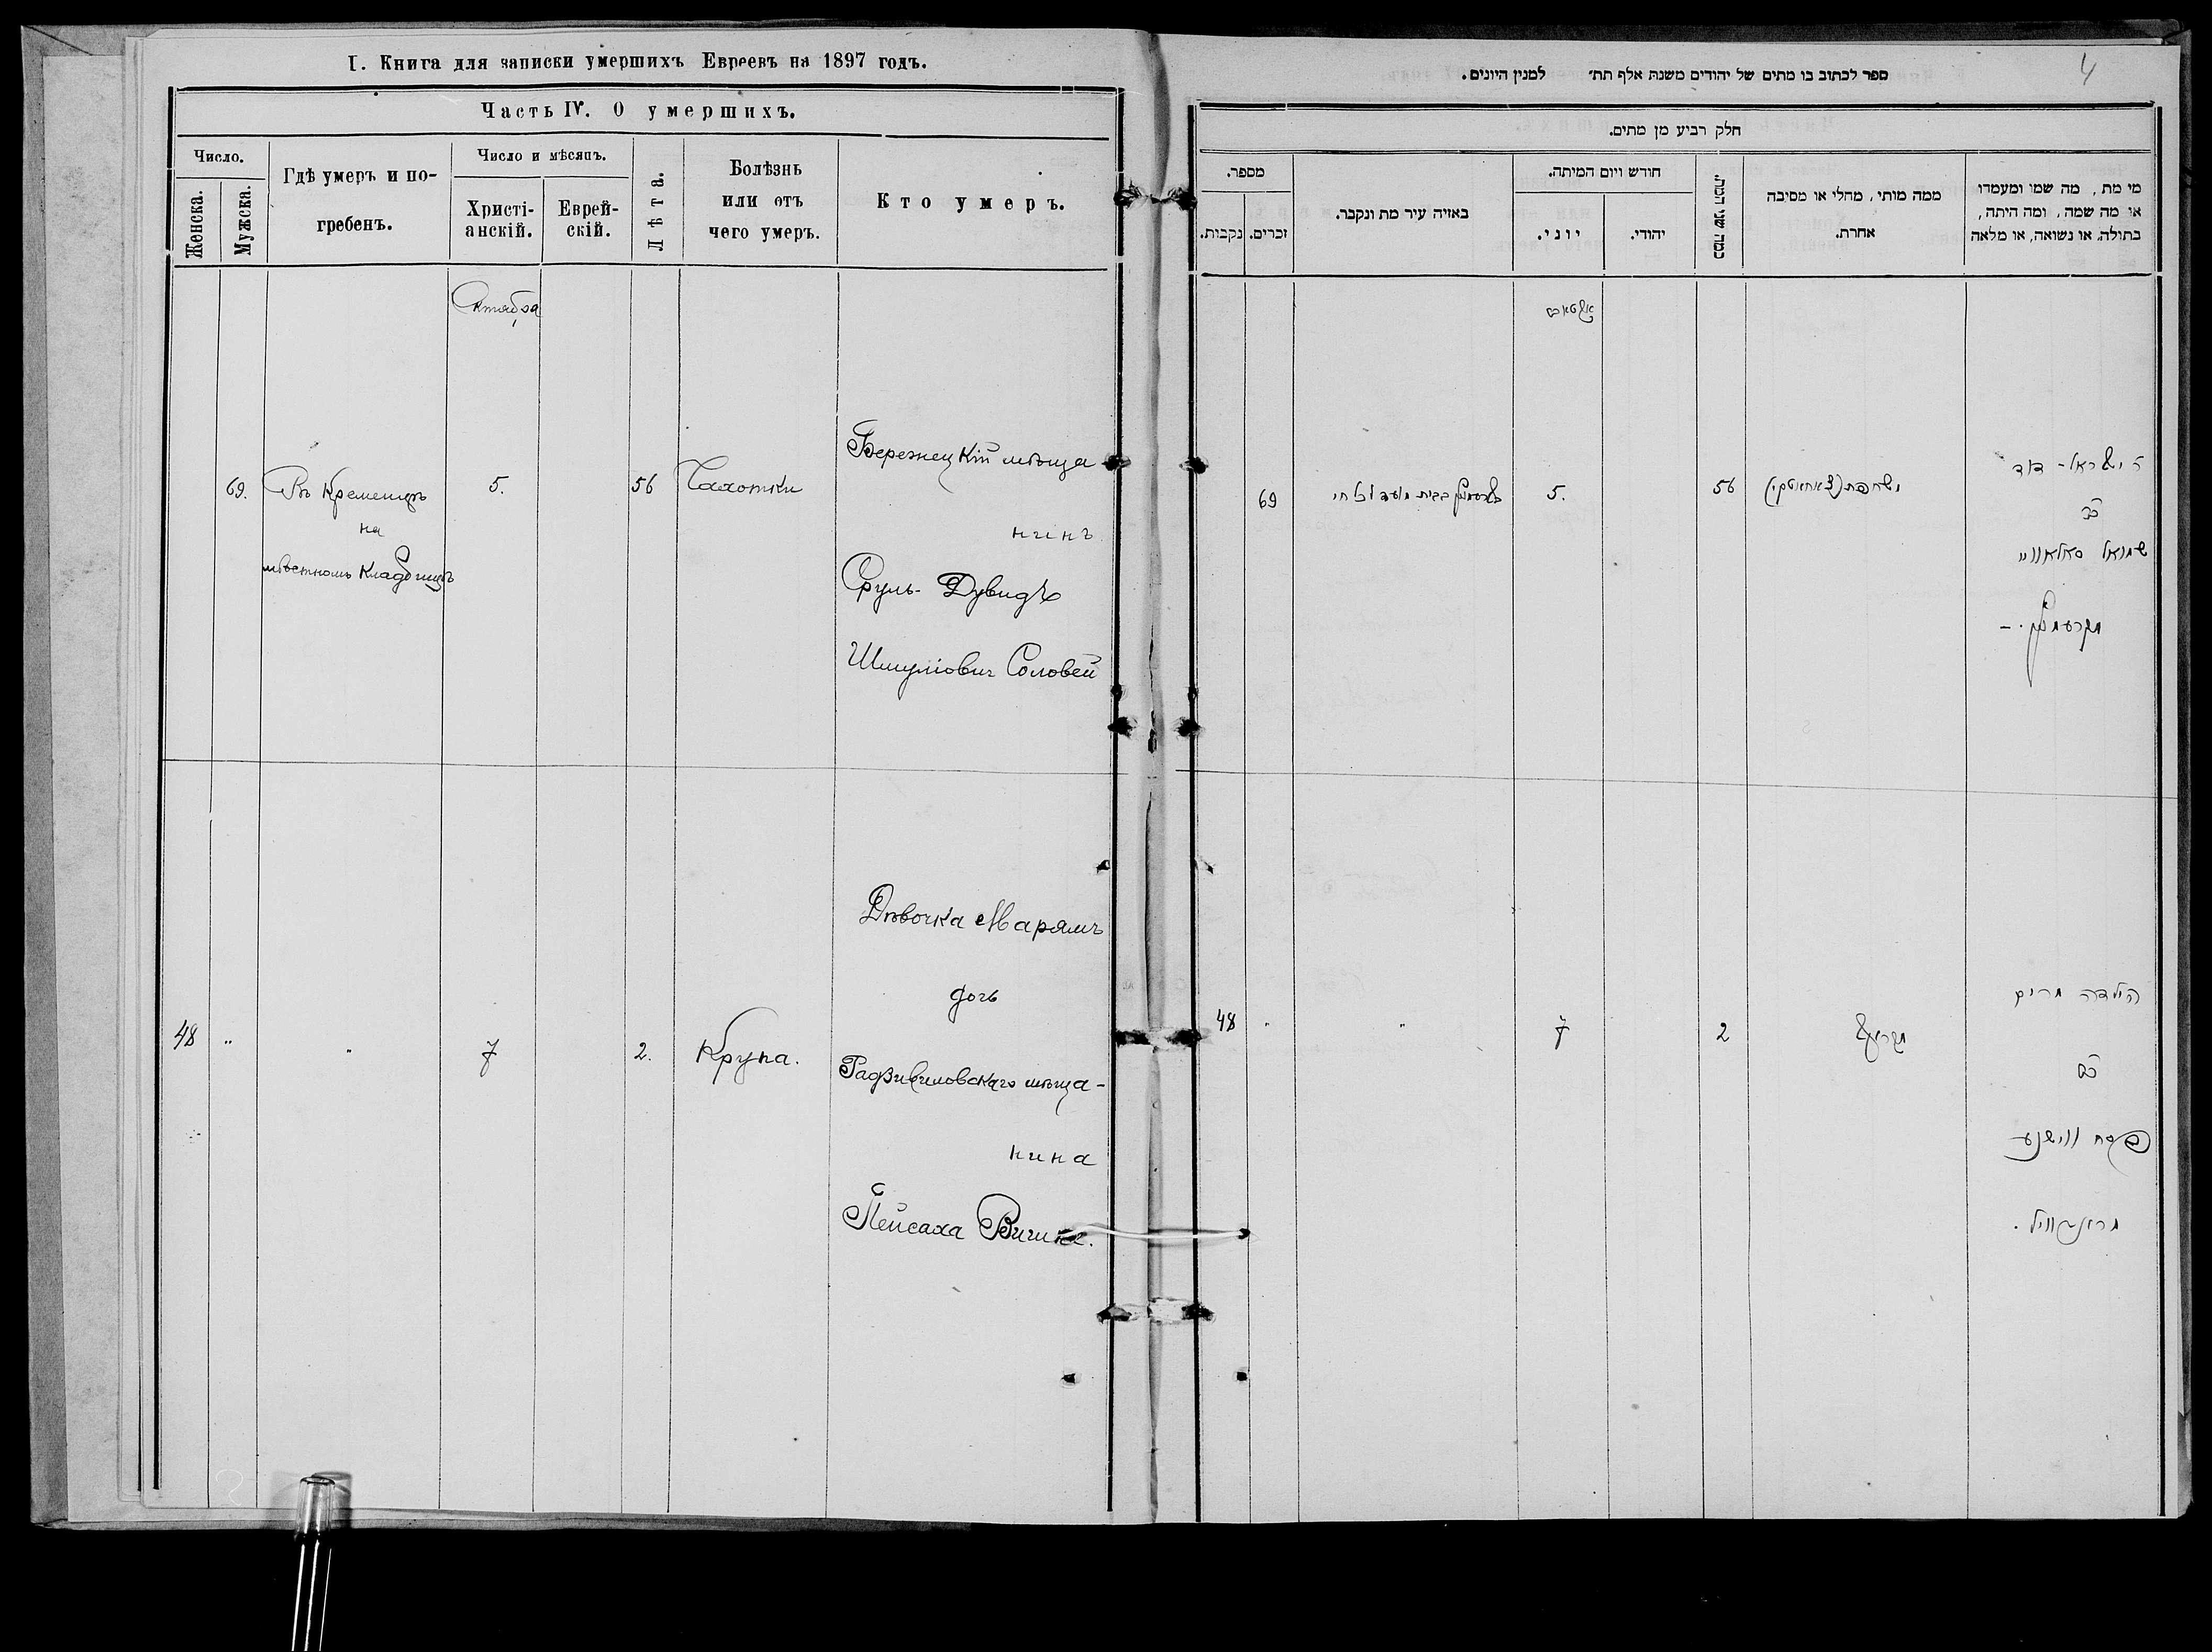 I. Книга для записки умершихъ Евреевъ на 1897 годъ.
Часть IV. О умершихъ.
Число.
Женска.
Мужска.
Гдѣ умеръ и по-
гребенъ.
Число и мѣсяцъ.
Христі-
анскій.
Еврей-
скій.
Лѣта.
Болѣзнь
или отъ
чего умеръ.
Кто умеръ.
Октября
69.
Въ Кременцѣ
на
мѣстномъ кладбищѣ
5.
56
Чахотки
Бережецкій мѣща
нинъ
Сруль-Дувидъ
Шмуліовичъ Соловей
48
"
"
7
2.
Крупа.
Дѣвочка Марямъ
дочь
Радзивиловскаго мѣща-
нина
Пейсаха Вишне.
4
ספר לכתוב בו מתים של יהודים משנת אלף תת׳ למנין היונים.
חלק רביע מן מתים.
מספר.
נקבות.
זכרים.
באזיה עיר מת ונקבר.
חודש ויום המיתה.
יוני.
יהודי.
כמה שני המת.
ממה מותי, מחלי או מסיבה
אחרת.
מי מת, מה שמו ומעמדו
או מה שמה, ומה היתה,
בתולה, או נשואה, או מלאה
69
5.
56
ר ישראל-דוד
ב״ר
שמואל סאלאוויי
מקרעמניץ.-
48
"
"
7
2
הילדה מרים
פסח ווישנע